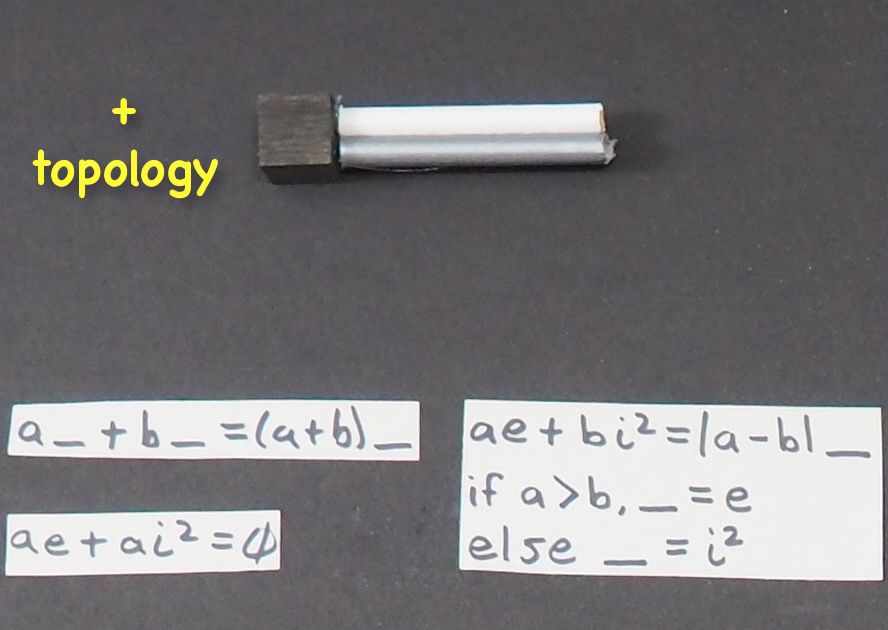 +
topology
a _ + b _ = (a+b) _
ae + ai² = φ
ae + bi² = |a - b| _
if a > b, _ = e
else _ = i²